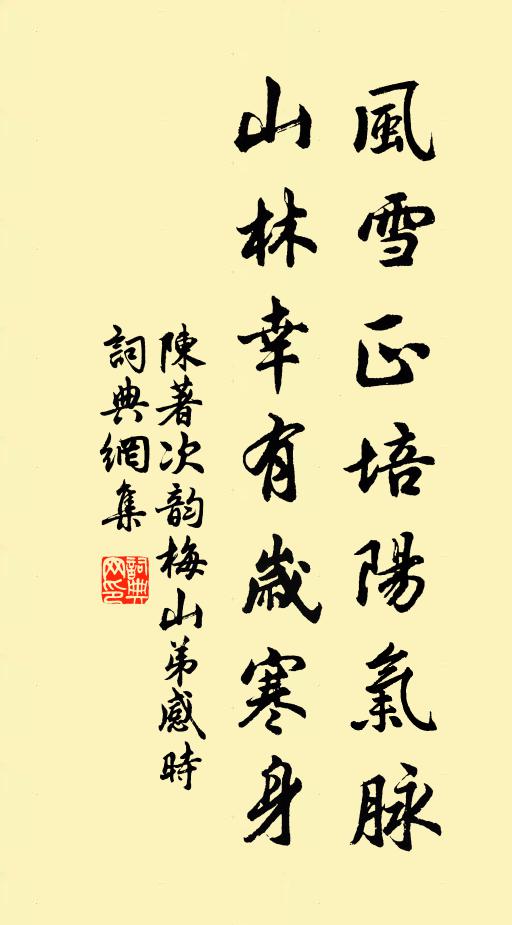 風雪正培陽氣脉
山林幸有歲寒身
陳著次韵梅山弟感時
詞典網集
詞典網印